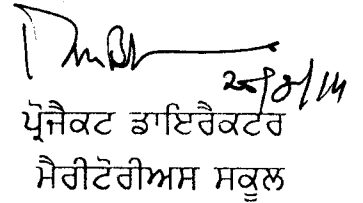 ਪ੍ਰੋਜੈਕਟ ਡਾਇਰੈਕਟਰ
ਮੈਰੀਟੋਰੀਅਸ ਸਕੂਲ